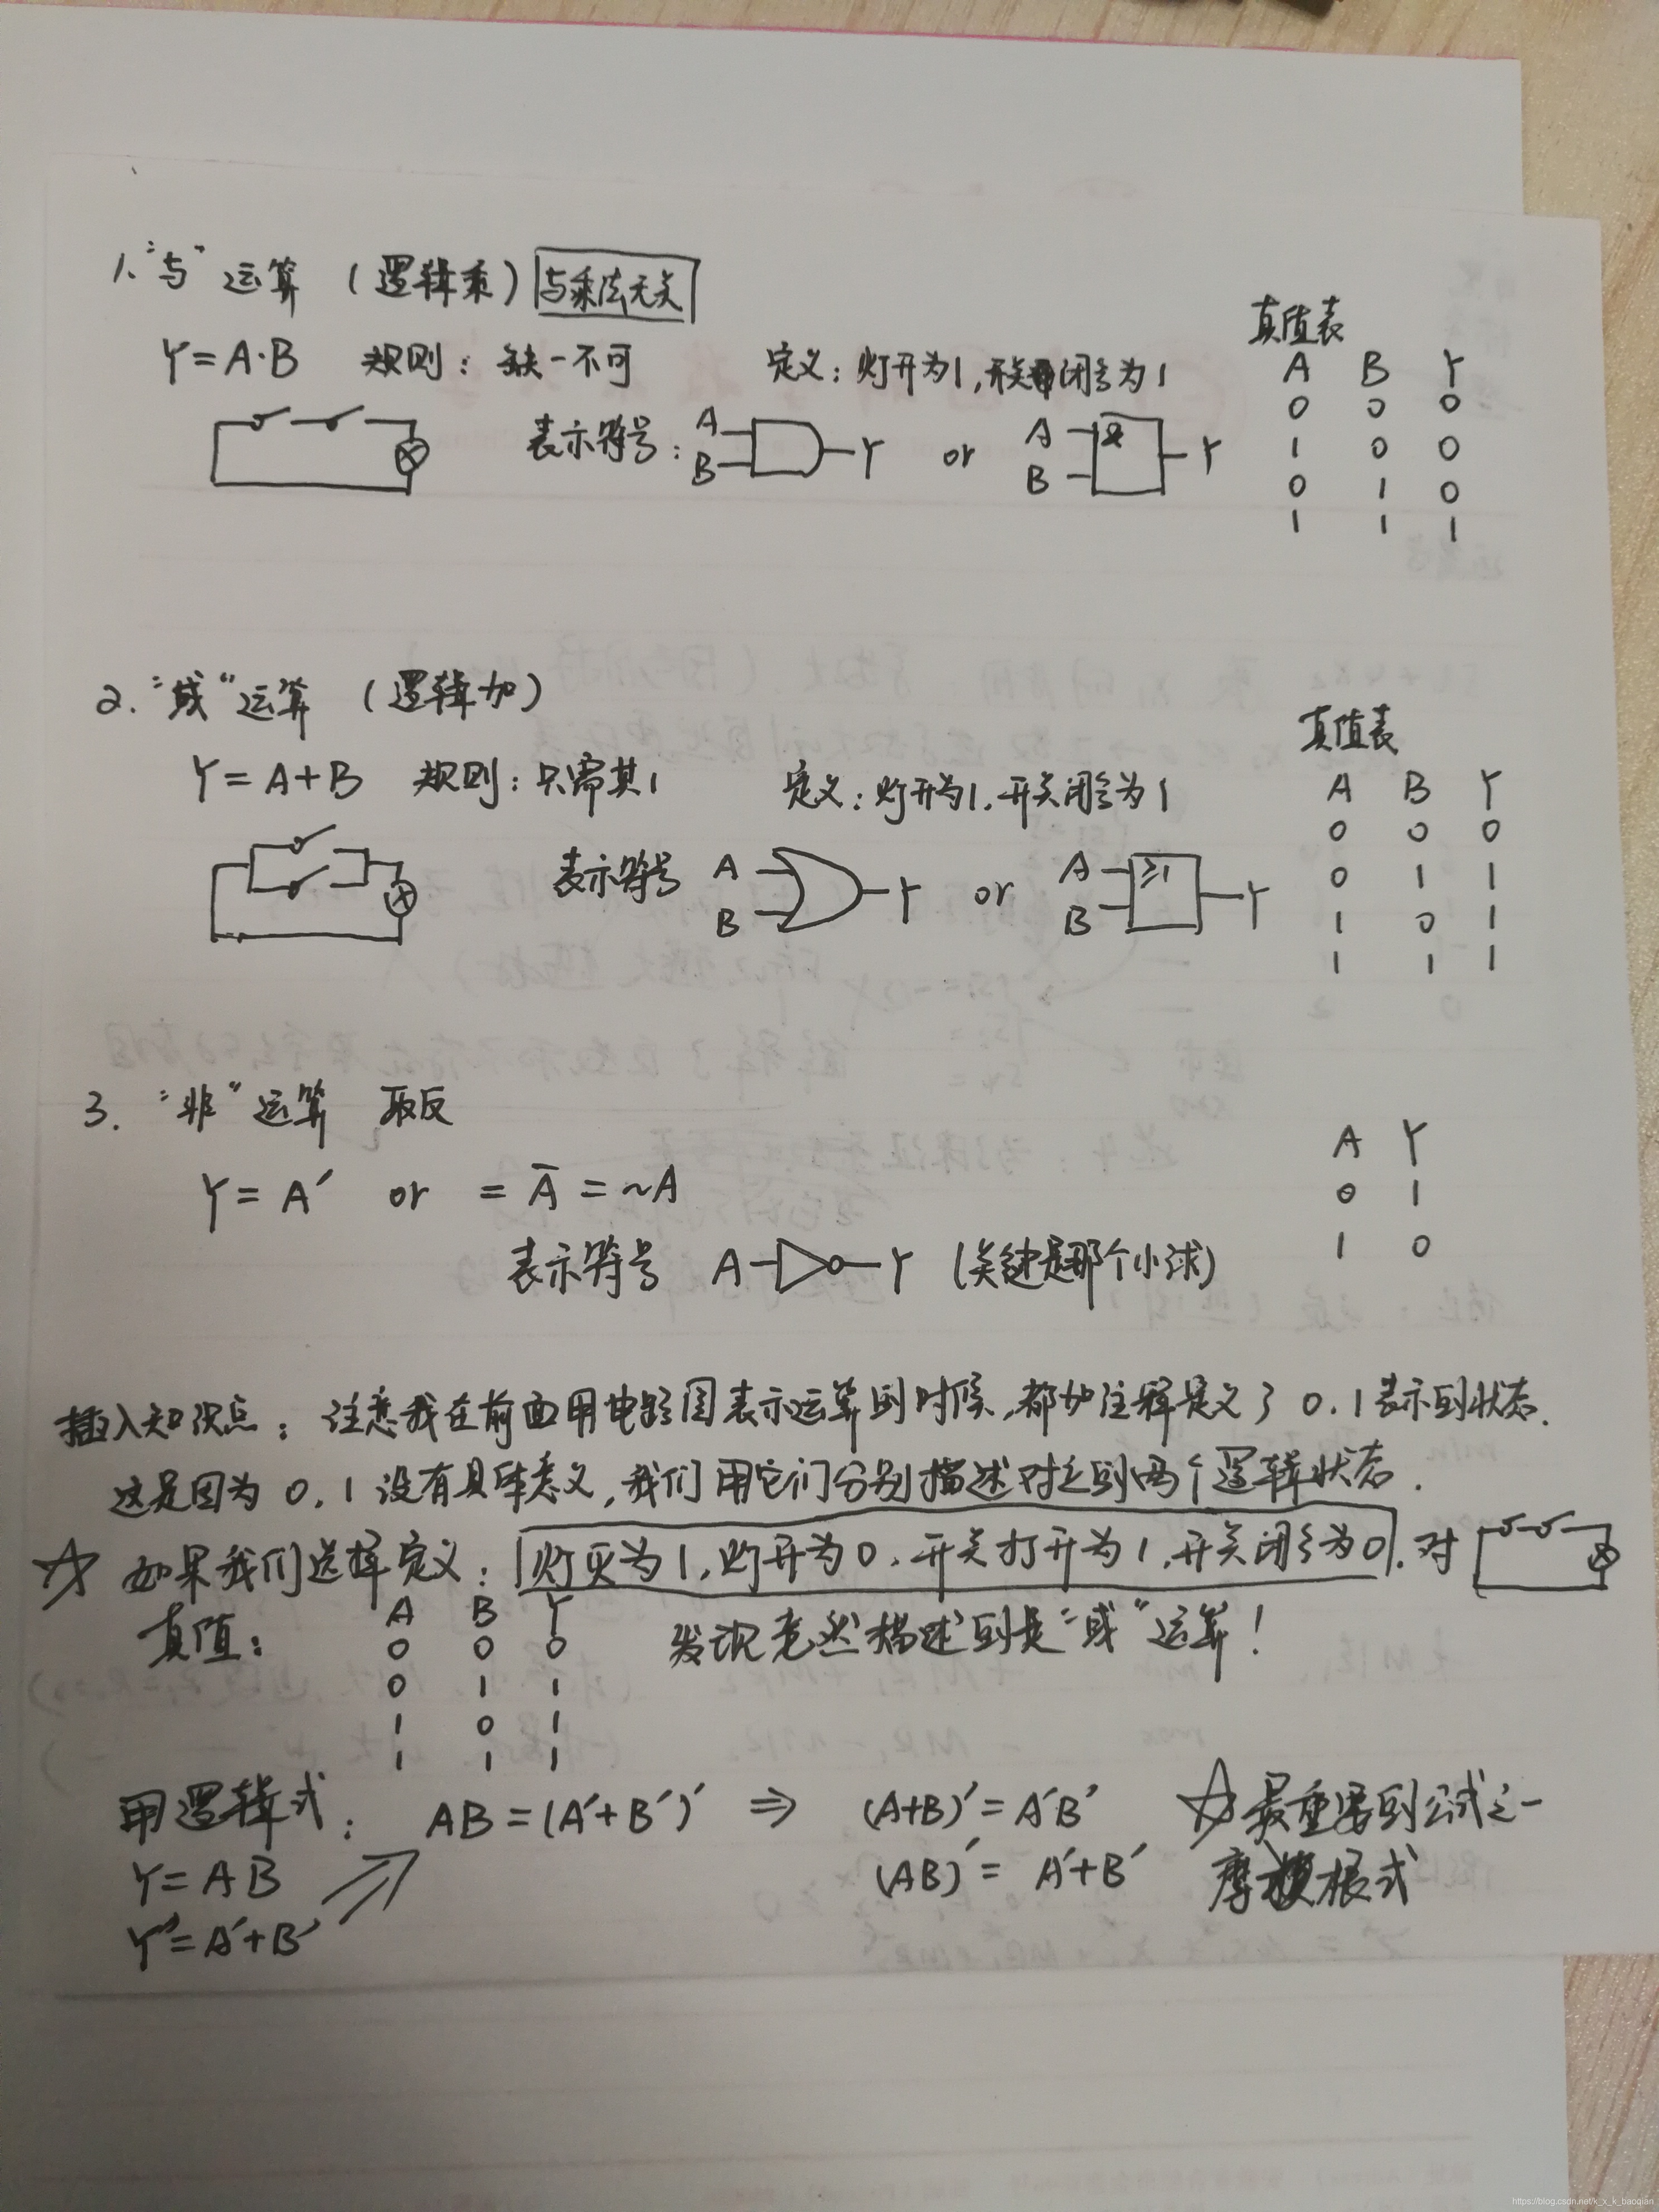 1. “与”运算 (逻辑乘) 与乘法无关
Y=A·B 规则: 缺一不可 定义: 灯开为1, 开关闭合为1
真值表
A B Y
0 0 0
1 0 0
0 1 0
1 1 1
表示符号: A B Y or A B & Y
2. “或”运算 (逻辑加)
Y=A+B 规则: 只需其1 定义: 灯开为1, 开关闭合为1
真值表
A B Y
0 0 0
0 1 1
1 0 1
1 1 1
表示符号 A B Y or A B ≥1 Y
3. “非”运算 取反
Y=A′ or =A̅=~A
A Y
0 1
1 0
表示符号 A Y (关键是那个小球)
插入知识点: 注意我在前面用电路图表示运算到时候, 都加注释定义了0.1表示到状态.
这是因为0,1没有具体意义, 我们用它们分别描述对立到两个逻辑状态.
☆ 如果我们选择定义: 灯灭为1, 灯开为0. 开关打开为1, 开关闭合为0. 对
真值:
A B Y
0 0 0
0 1 1
1 0 1
1 1 1
发现竟然描述到是“或”运算!
用逻辑式: AB=(A′+B′)′ ⇒ (A+B)′=A′B′ ☆最重要到公式之一
Y=AB (AB)′=A′+B′ 摩根式
Y′=A′+B′
https://blog.csdn.net/k_x_k_baoqian